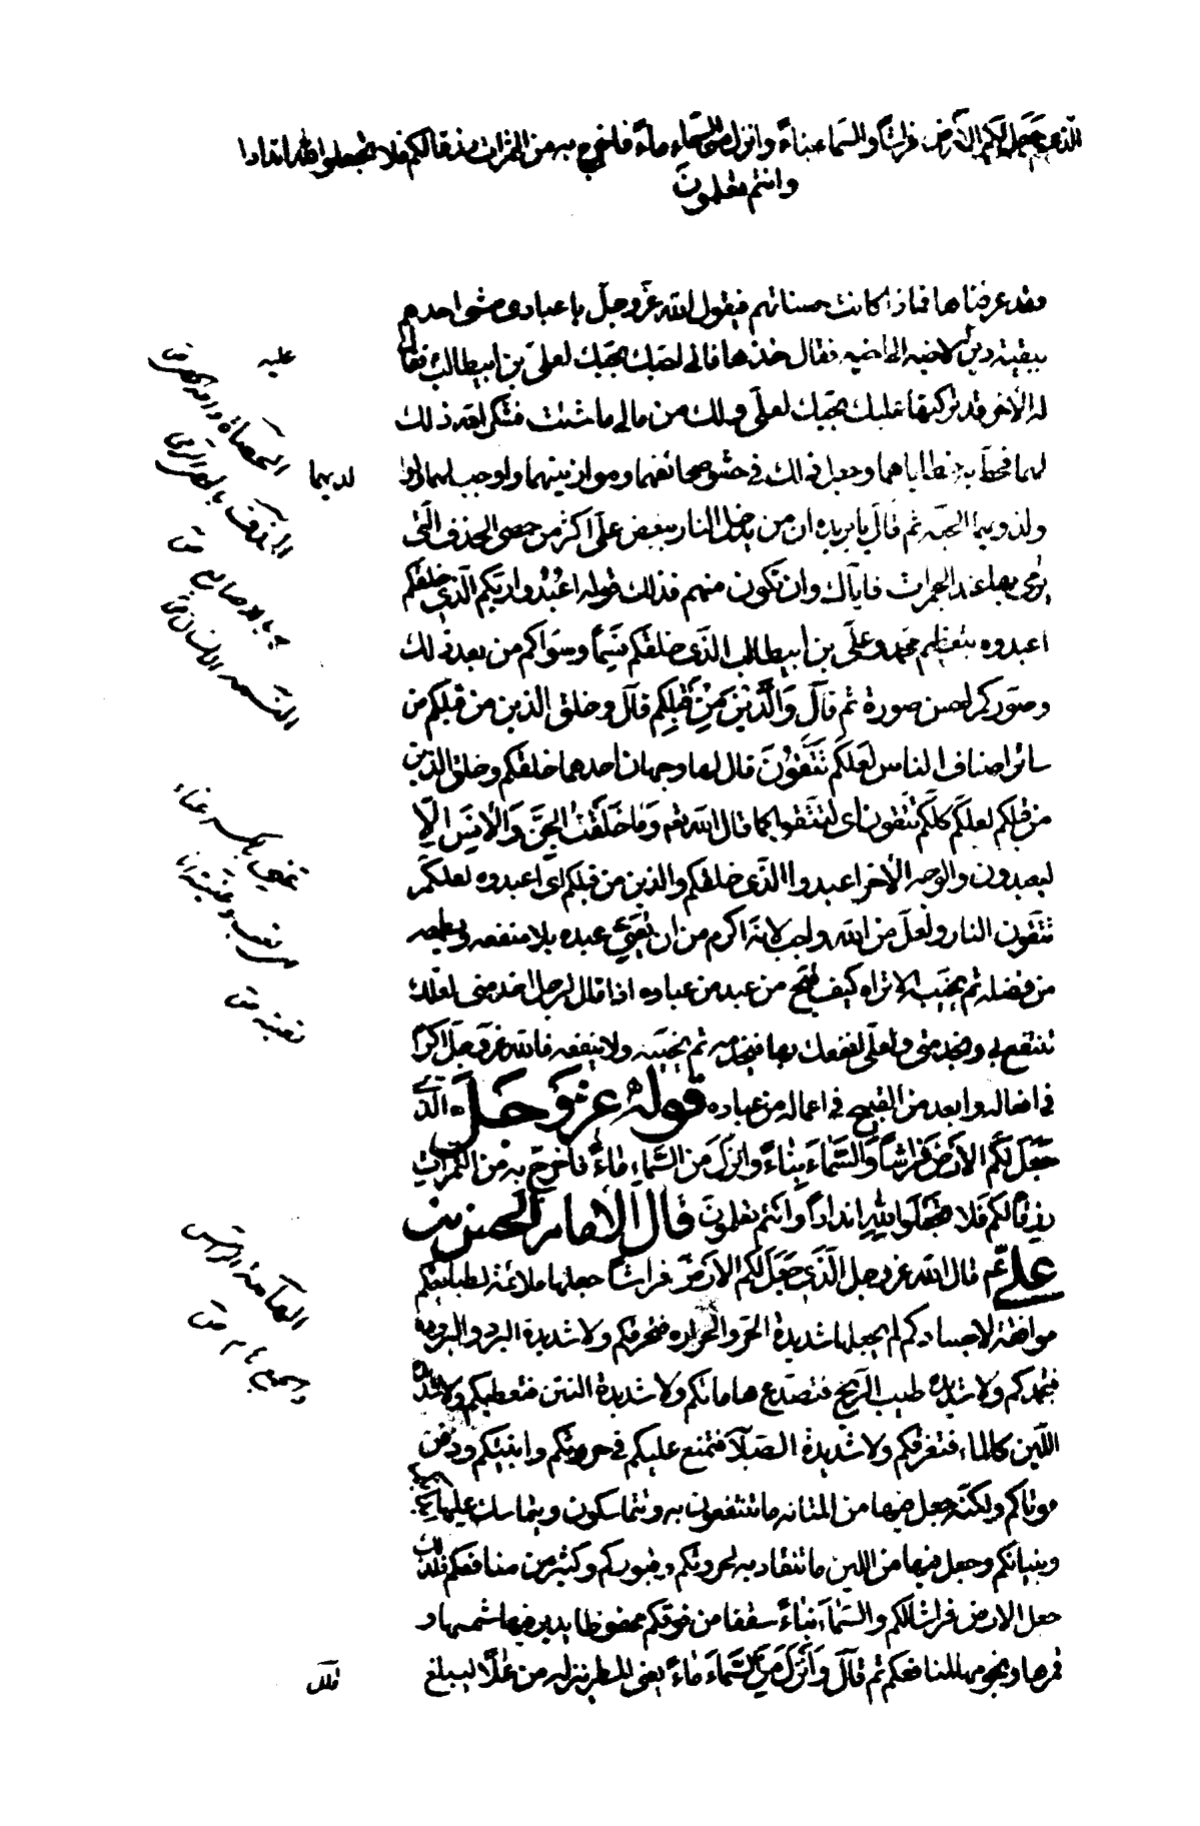 الذى جعل لكم الأرض فراشًا والسماء بناءً وانزل من السماء ماءً فاخرج به من الثمرات رزقا لكم فلا تجعلوا لله اندادا
وانتم تعلمون
وقد عرضناها فماذا كانت حسناتهم فيقول الله عزوجل يا عبادى مشى احدهم
ببقية دين لاخيه الى اخيه فقال خذها فانى احبك بحبك لعلى بن ابيطالب فقال
له الآخر قد تركتها عليك بحبك لعلى ولك من مالى ما شئت فشكر الله ذلك
لهما فحط به خطاياهما وجعل ذلك فى حشو صحائفهما وموازينهما واوجب لهما ولوا
ولذريتهما الجنه ثم قال يا بريده ان من يدخل النار ببغض على اكثر من حصى الحذف التى
يرمى بها عند الجمرات فاياك وان تكون منهم فذلك قوله اعْبُدُوا ربكم الذى خلقكم
اعبدوه بتعظيم محمد وعلى بن ابيطالب الذى خلقكم نسمًا وسواكم من بعد ذلك
وصوركم احسن صورة ثم قال وَالَّذِينَ مِنْ قَبْلِكم قال وخلق الذين من قبلكم من
سائر اصناف الناس لعَلكم تَتَّقُونَ قال لها وجهان احدهما خلقكم وخلق الذين
من قبلكم لعلكم كلكم تتقون اى لتتقوا كما قال الله تعه وَما خَلَقْتُ الجِنَّ وَالْاِنْسَ اِلّا
ليعبدون والوجه الآخر اعبدوا الذى خلقكم والذين من قبلكم اى اعبدوه لعلكم
تتقون النار ولعل من الله واجب لانه اكرم من ان يعنى عبده بلا منفعه ويطمعه
من فضله ثم يخيبه الا تراه كيف قبح من عبد من عباده اذا قال لرجل اخدمنى لعلك
تنتفع بى وتخدمنى ولعلى انفعك بها فيخدمه ثم يخيبه ولا ينفعه فالله عزوجل اكرم
فى افعاله وابعد من القبيح فى اعماله من عباده قوله عزوجل الذى
جعل لكم الارض فراشًا وَالسَّماءَ بِناءً وانزل من السَّماءِ ماءً فاخرج به من الثمرات
رزقًا لكم فلا تجعلوا لله اندادًا وانتم تعلمون قال الامام الحسن بن
على عم قال الله عزوجل الَّذى جعل لكم الارضَ فراشًا جعلها ملائمة لطبايعكم
موافقة لاجسادكم لم يجعلها شديدة الحر والحراره فتحرقكم ولا شديدة البرد والبروده
فتجمدكم ولا شديده طيب الريح فتصدع هاماتكم ولا شديدة النتن فتعطبكم ولا شديده
اللين كالماء فتغرقكم ولا شديدة الصلابة فتمتنع عليكم فى حرثكم وابنيتكم ودفن
موتاكم ولكنه جعل فيها من المتانه ما تنتفعون به وتتماسكون ويتماسك عليها
وبنيانكم وجعل فيها من اللين ما تنقاد به لحرثكم وقبوركم وكثير من منافعكم فلذلك
جعل الارض فراشا لكم والسَّماءَ بناءً سقفا من فوقكم محفوظا يدير فيها شمسها و
قمرها ونجومها لمنافعكم ثم قال وَاَنْزَلَ مِنَ السَّماءِ ماءً يعنى المطر ينزله من علا ليبلغ
عليه
لديهما
الحصاة واحدة الحصى ص
الخذف بالحصى الرمى
به بالاصابع ص
النسمه الانسان ص
تعنى
تعب
ص
الهامة الرأس
والجمع هام ص
قلل